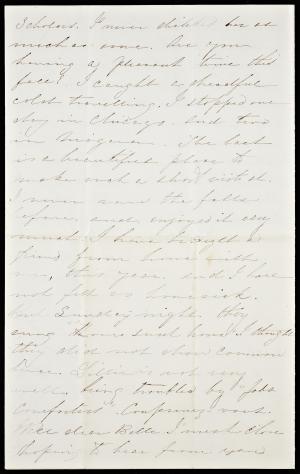 Scholars. I never disliked her as
much as some. Are you
having a pleasant time this
fall? I caught a dreadful
cold travelling. I stopped one
day in Chicago and two
in Niagara. The last
is a beautiful place to
make such a short visit at.
I never saw the falls
before and enjoyed it very
much. I have brought a
friend from home with
me, this year. and I have
not felt so homesick.
but Sunday night they
sung "Home sweet home" I thought
they did not show common
sense. is not very
well. being troubled by "Jobs
Comforters". Confusing
Well dear Belle I must close
hoping to hear from you